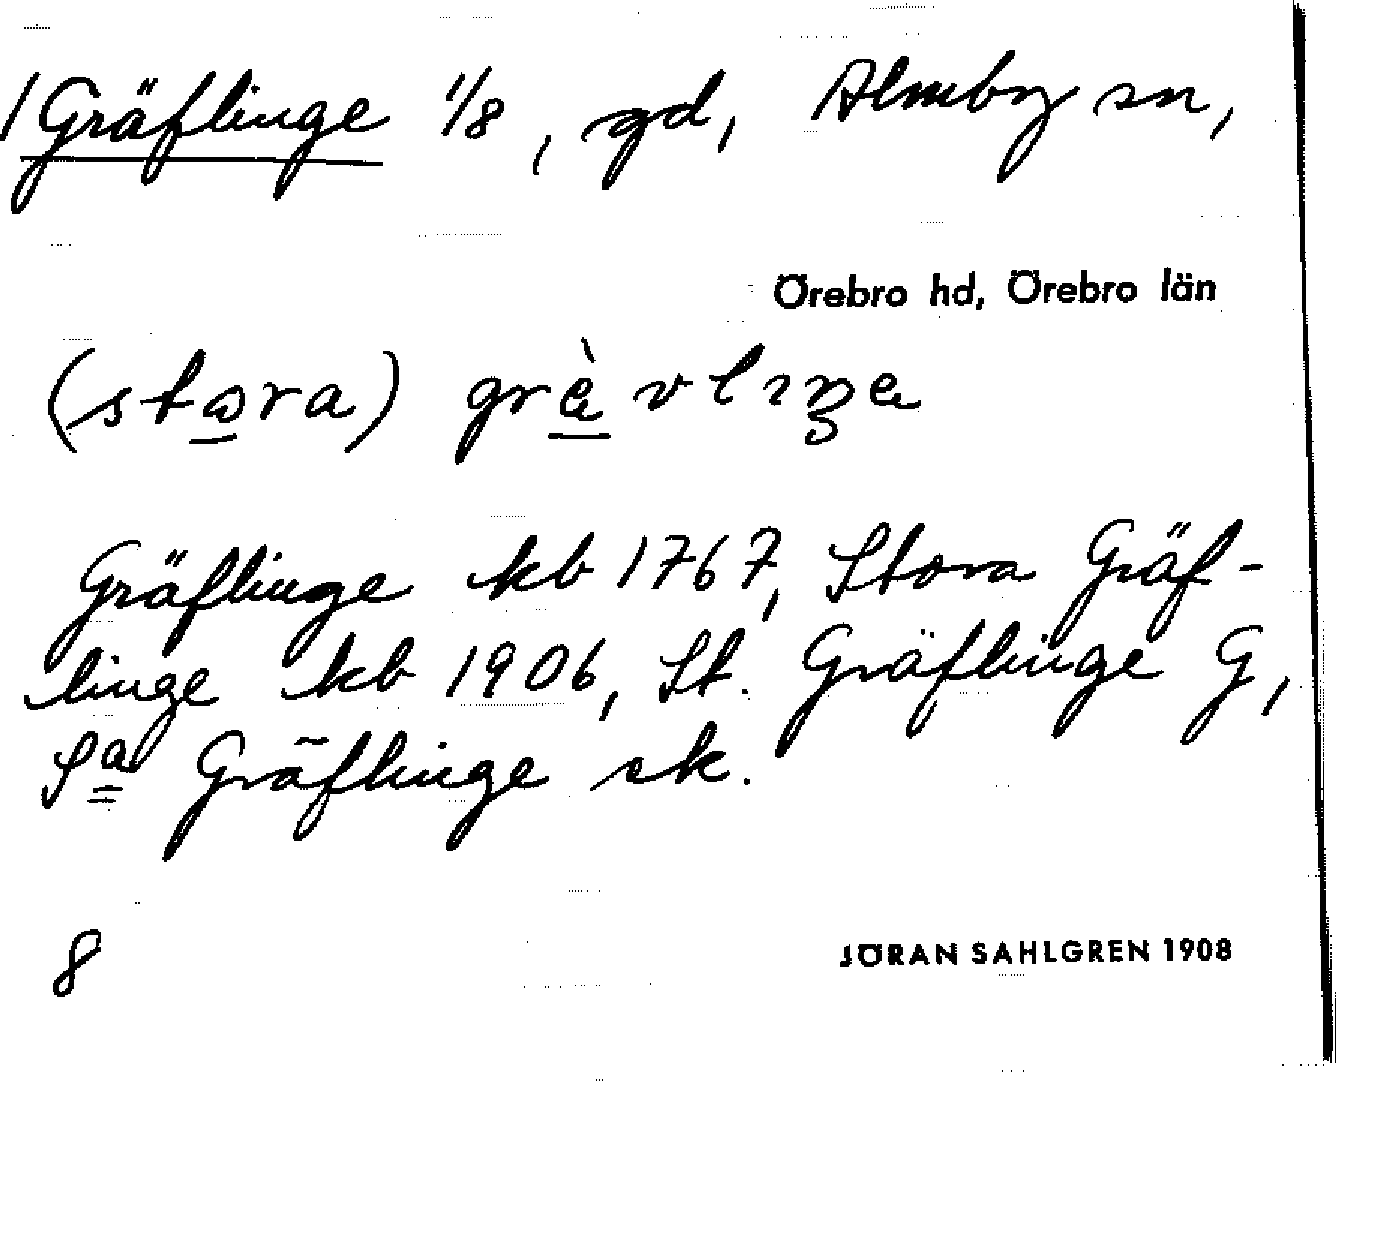 /Gräflinge 1/8, gd, Almby sn,
Örebro hd, Örebro län
(stora) grävlinge
Gräflinge kb 1767, Stora Gräf-
linge kb 1906, St. Gräflinge G,
Sa Gräflinge sk.
8
JÖRAN SAHLGREN 1908